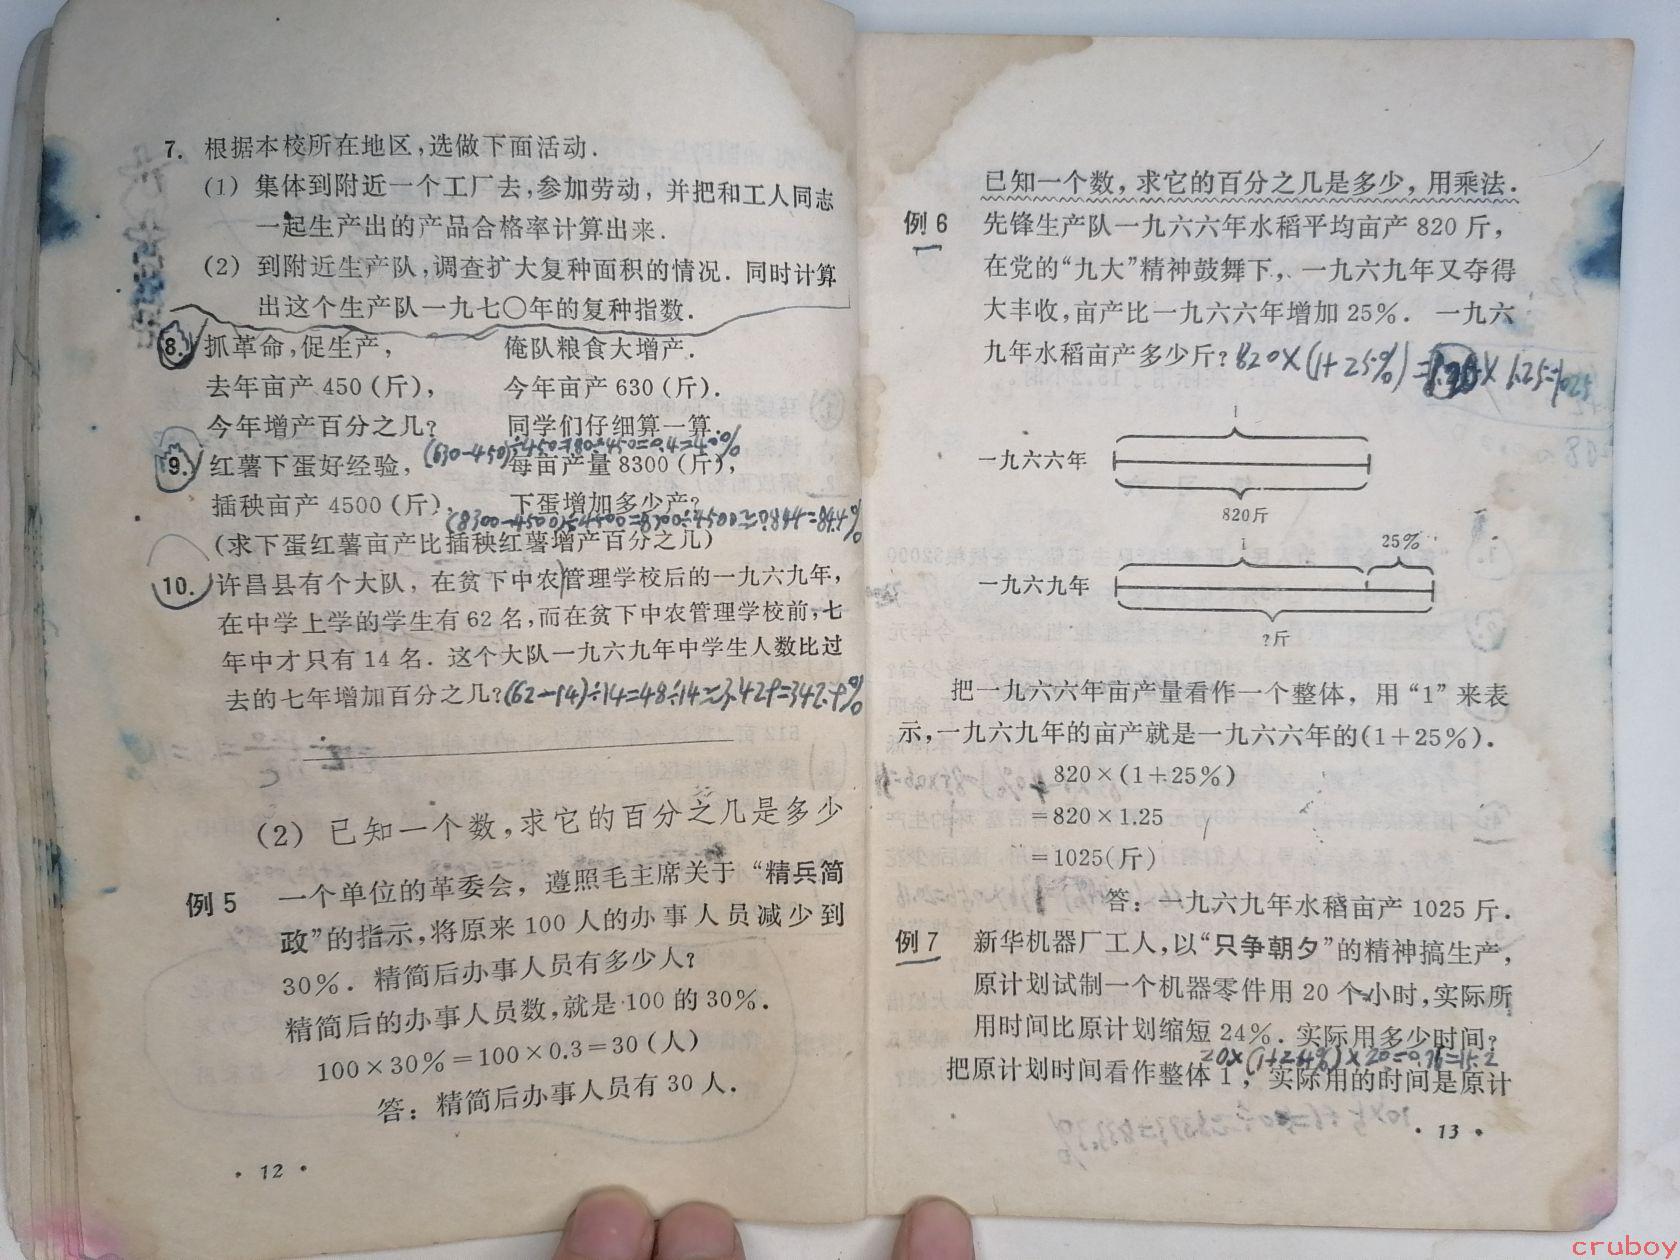 7. 根据本校所在地区,选做下面活动.
(1) 集体到附近一个工厂去,参加劳动,并把和工人同志
一起生产出的产品合格率计算出来.
(2) 到附近生产队,调查扩大复种面积的情况.同时计算
出这个生产队一九七〇年的复种指数.
8. 抓革命,促生产, 俺队粮食大增产.
去年亩产 450 (斤), 今年亩产 630 (斤).
今年增产百分之几? 同学们仔细算一算.
(630-450)÷450=180÷450=0.4=40%
9. 红薯下蛋好经验, 每亩产量 8300 (斤),
插秧亩产 4500 (斤). 下蛋增加多少产?
(求下蛋红薯亩产比插秧红薯增产百分之几)
10. 许昌县有个大队,在贫下中农管理学校后的一九六九年,
在中学上学的学生有 62 名,而在贫下中农管理学校前,七
年中才只有 14 名.这个大队一九六九年中学生人数比过
去的七年增加百分之几? (62-14)÷14=48÷14≈
(2) 已知一个数,求它的百分之几是多少
例 5 一个单位的革委会,遵照毛主席关于“精兵简
政”的指示,将原来 100 人的办事人员减少到
30%.精简后办事人员有多少人?
精简后的办事人员数,就是 100 的 30%.
100×30%=100×0.3=30 (人)
答:精简后办事人员有 30 人.
· 12 ·
已知一个数,求它的百分之几是多少,用乘法.
例 6 先锋生产队一九六六年水稻平均亩产 820 斤,
在党的“九大”精神鼓舞下,一九六九年又夺得
大丰收,亩产比一九六六年增加 25%. 一九六
九年水稻亩产多少斤? 820×(1+25%)=
1
一九六六年
820斤
1 25%
一九六九年
?斤
把一九六六年亩产量看作一个整体,用“1”来表
示,一九六九年的亩产就是一九六六年的(1+25%).
820×(1+25%)
=820×1.25
=1025(斤)
答:一九六九年水稻亩产 1025 斤.
例 7 新华机器厂工人,以“只争朝夕”的精神搞生产,
原计划试制一个机器零件用 20 个小时,实际所
用时间比原计划缩短 24%.实际用多少时间?
把原计划时间看作整体 1,实际用的时间是原计
· 13 ·
cruboy